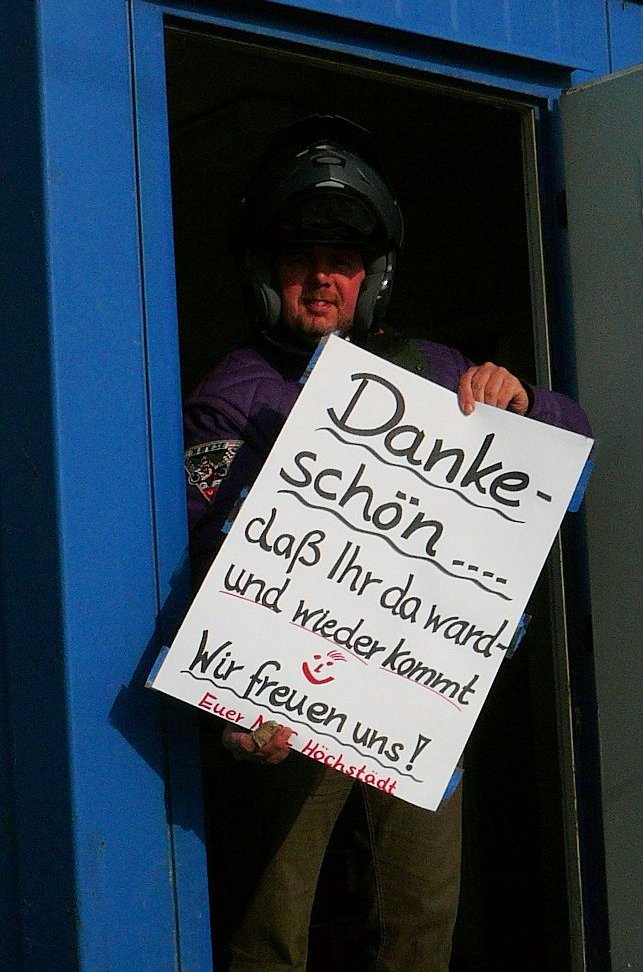 Danke-
schön....
daß Ihr da ward-
und wieder kommt
Wir freuen uns!
Euer Höchstädt